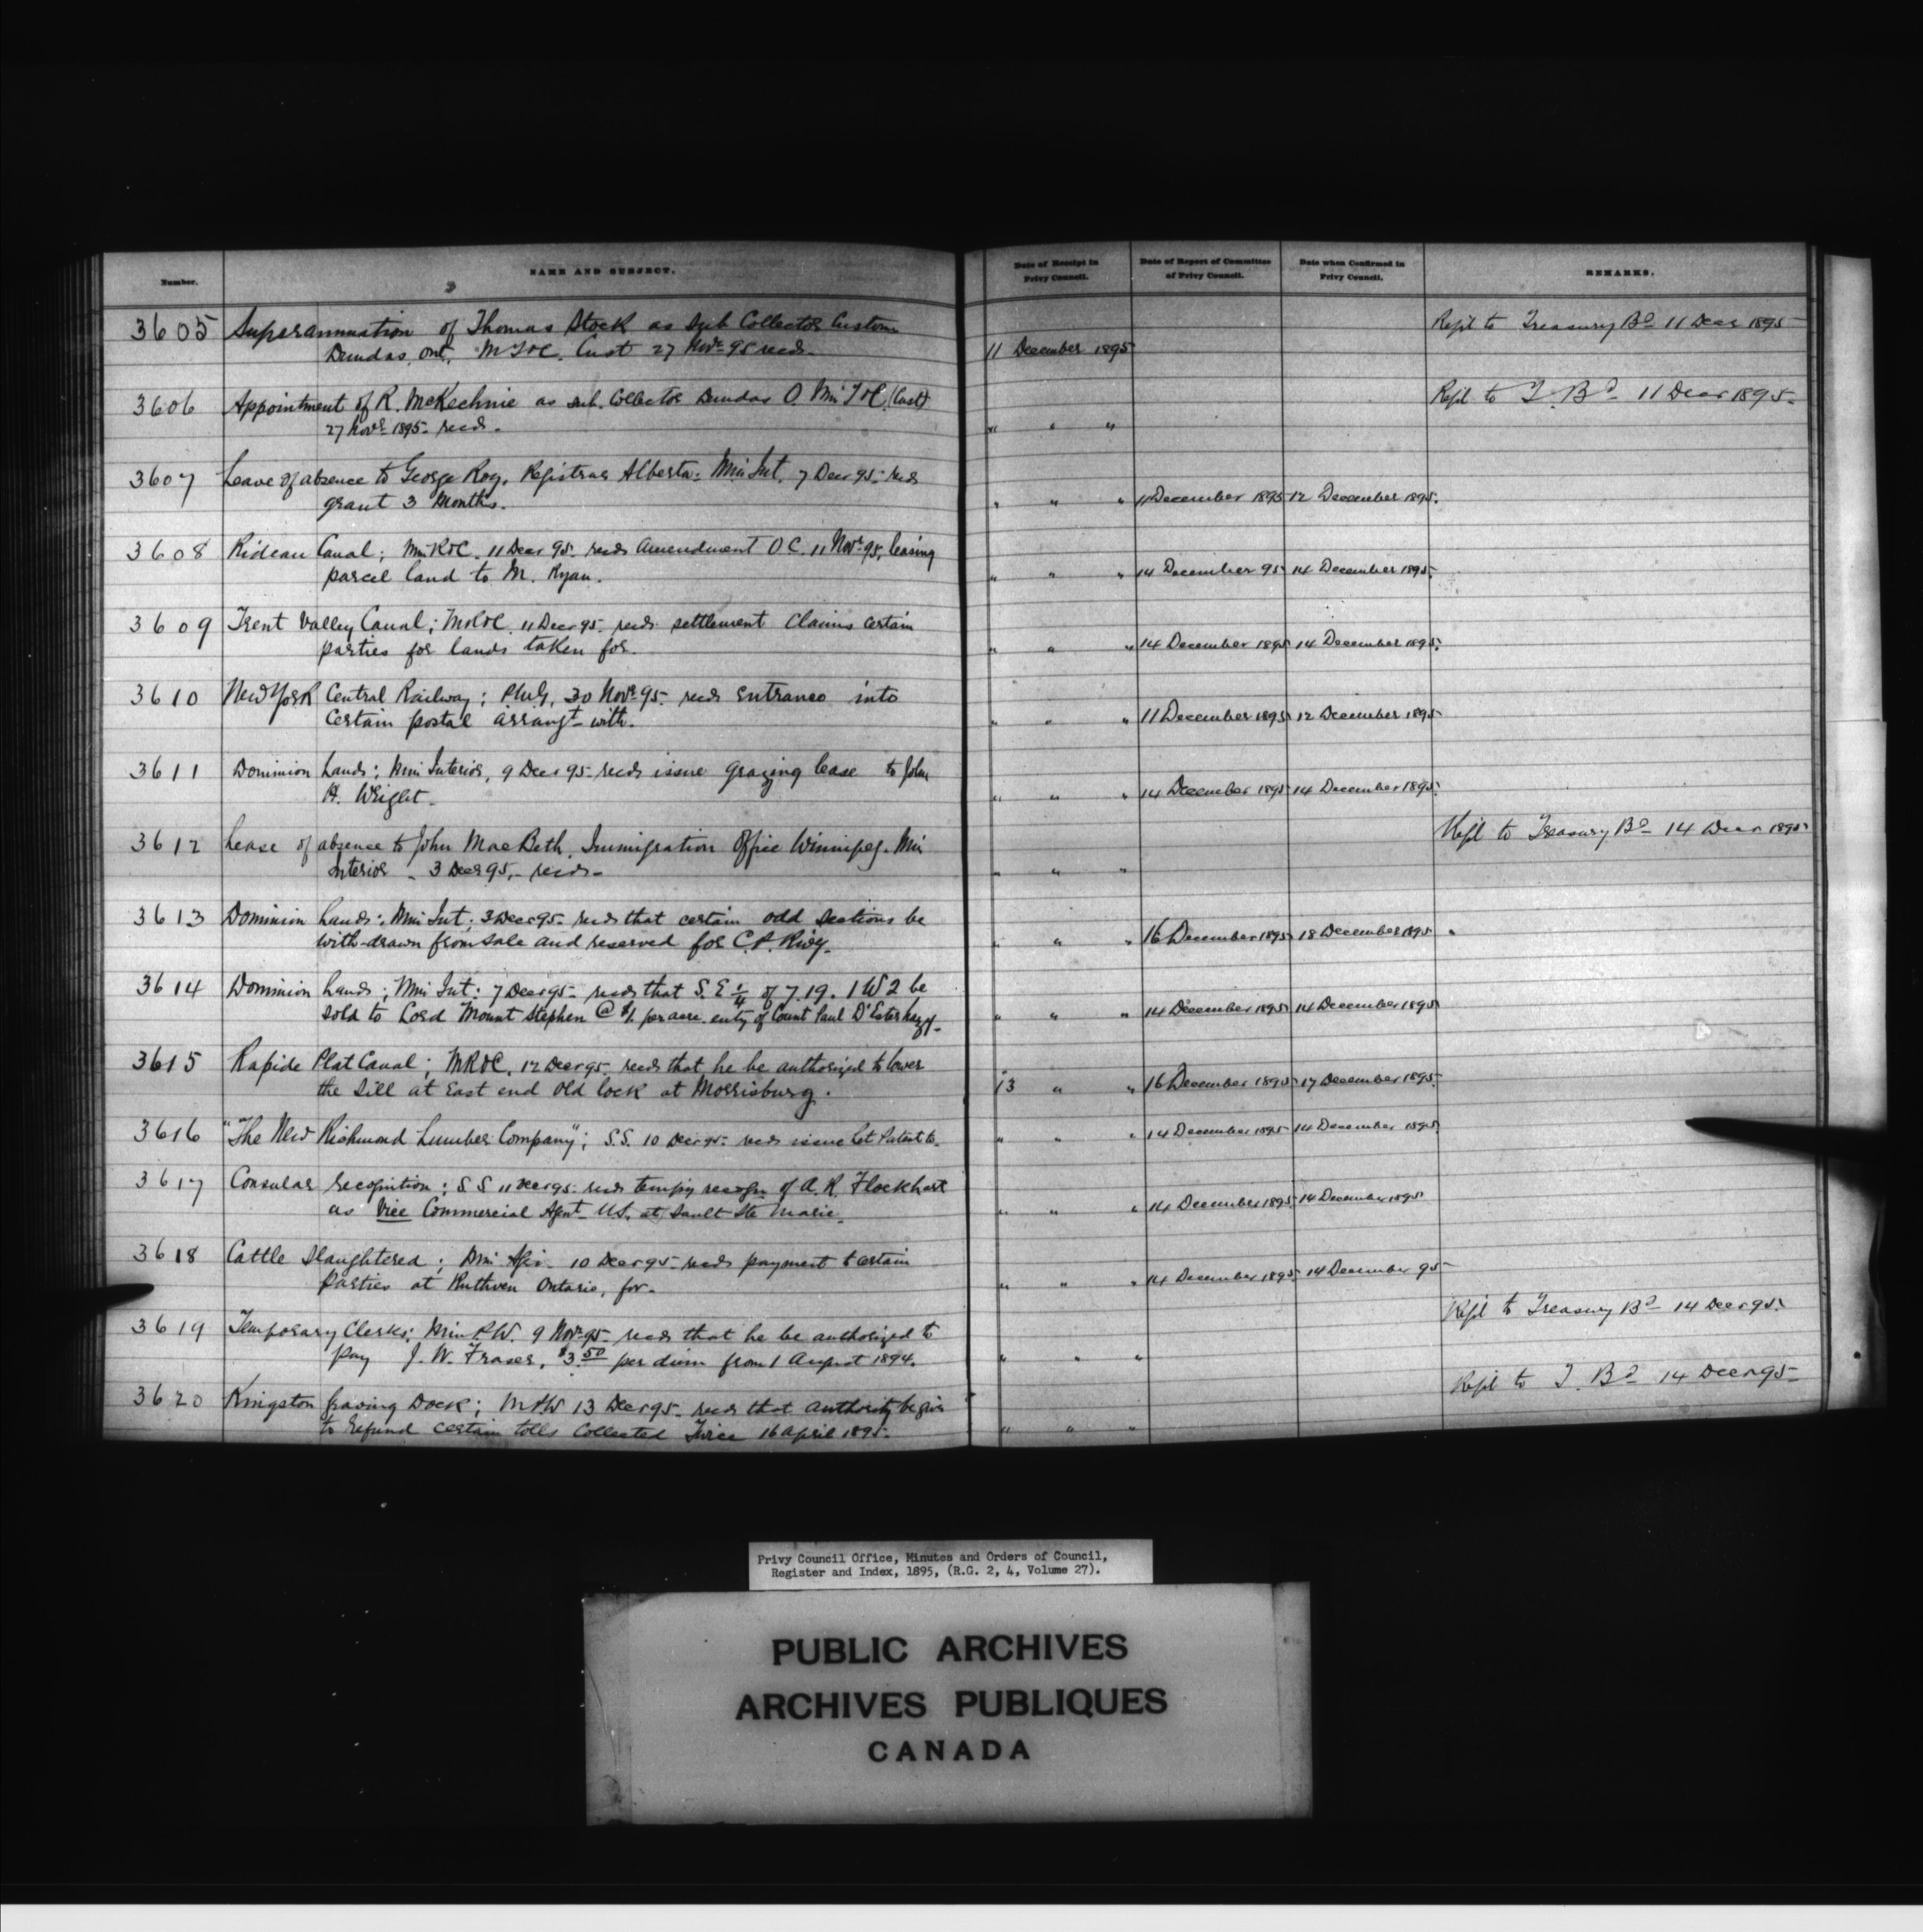 Number.
NAME AND SUBJECT.
Date of Receipt in Privy Council.
Date of Report of Committee of Privy Council.
Date when Confirmed in Privy Council.
REMARKS.
3605 Superannuation of Thomas Stock as Sub Collector Customs Refd to Treasury Bd 11 Decr 1895
Dundas, Ont, M T & C. Cust 27 Novr 95 recds. 11 December 1895
3606 Appointment of R. McKechnie as sub. Collector Dundas O. Min T & C (Cust) Refd to T. Bd 11 Decr 1895
27 Novr 1895 recds. " " "
3607 Leave of absence to George Roy, Registrar Alberta: Min Int. 7 Decr 95 recds
grant 3 Months. " " " 11 December 1895 12 December 1895.
3608 Rideau Canal; Min R & C. 11 Decr 95 recds Amendment O C. 11 Novr 95, leasing
parcel land to M. Ryan. " " " 14 December 95 14 December 1895.
3609 Trent Valley Canal; M R & C. 11 Decr 95 recds settlement Claims certain
parties for lands taken for. " " " 14 December 1895 14 December 1895.
3610 New York Central Railway; P.M.G. 30 Novr 95 recds entrance into
Certain postal arrangt with. " " " 11 December 1895 12 December 1895
3611 Dominion Lands: Min Interior, 9 Decr 95 recds issue grazing lease to John
H. Wright. " " " 14 December 1895 14 December 1895.
3612 Leave of absence to John MacBeth, Immigration Office Winnipeg. Min Refd to Treasury Bd 14 Decr 1895
Interior 3 Decr 95, recds " " "
3613 Dominion Lands: Min Int. 3 Decr 95 recds that certain odd Sections be
with-drawn from sale and reserved for C.P. Rwy. " " " 16 December 1895 18 December 1895
3614 Dominion Lands; Min Int: 7 Decr 95 recds that S.E ¼ of 7.19.1 W2 be
sold to Lord Mount Stephen @ $1. per acre, enty of Count Paul D'Esterhazy. " " " 14 December 1895 14 December 1895
3615 Rapide Plat Canal; M R & C. 12 Decr 95 recds that he be authorized to lower
the Sill at East end Old lock at Morrisburg. 13 " " 16 December 1895 17 December 1895.
3616 "The New Richmond Lumber Company"; S.S. 10 Decr 95 recds issue Let Patent to. " " " 14 December 1895 14 December 1895
3617 Consular recognition: S S 11 Decr 95 recds tempy recogn of A. R. Flockhart
as Vice Commercial Agent U.S. at Sault Ste Marie. " " " 14 December 1895 14 December 1895
3618 Cattle Slaughtered; Min Agri 10 Decr 95 recds payment to certain
Parties at Ruthven Ontario, for. " " " 14 December 1895 14 December 95
3619 Temporary Clerks; Min P.W. 9 Novr 95 recds that he be authorized to Refd to Treasury Bd 14 Decr 95.
pay J. W. Fraser, $3.50 per diem from 1 August 1894. " " "
3620 Kingston Graving Dock; M P W 13 Decr 95 recds that authority be given Refd to T. Bd 14 Decr 95
to refund certain tolls Collected Twice 16 April 1895. " " "
Privy Council Office, Minutes and Orders of Council,
Register and Index, 1895, (R.G. 2, 4, Volume 27).
PUBLIC ARCHIVES
ARCHIVES PUBLIQUES
CANADA